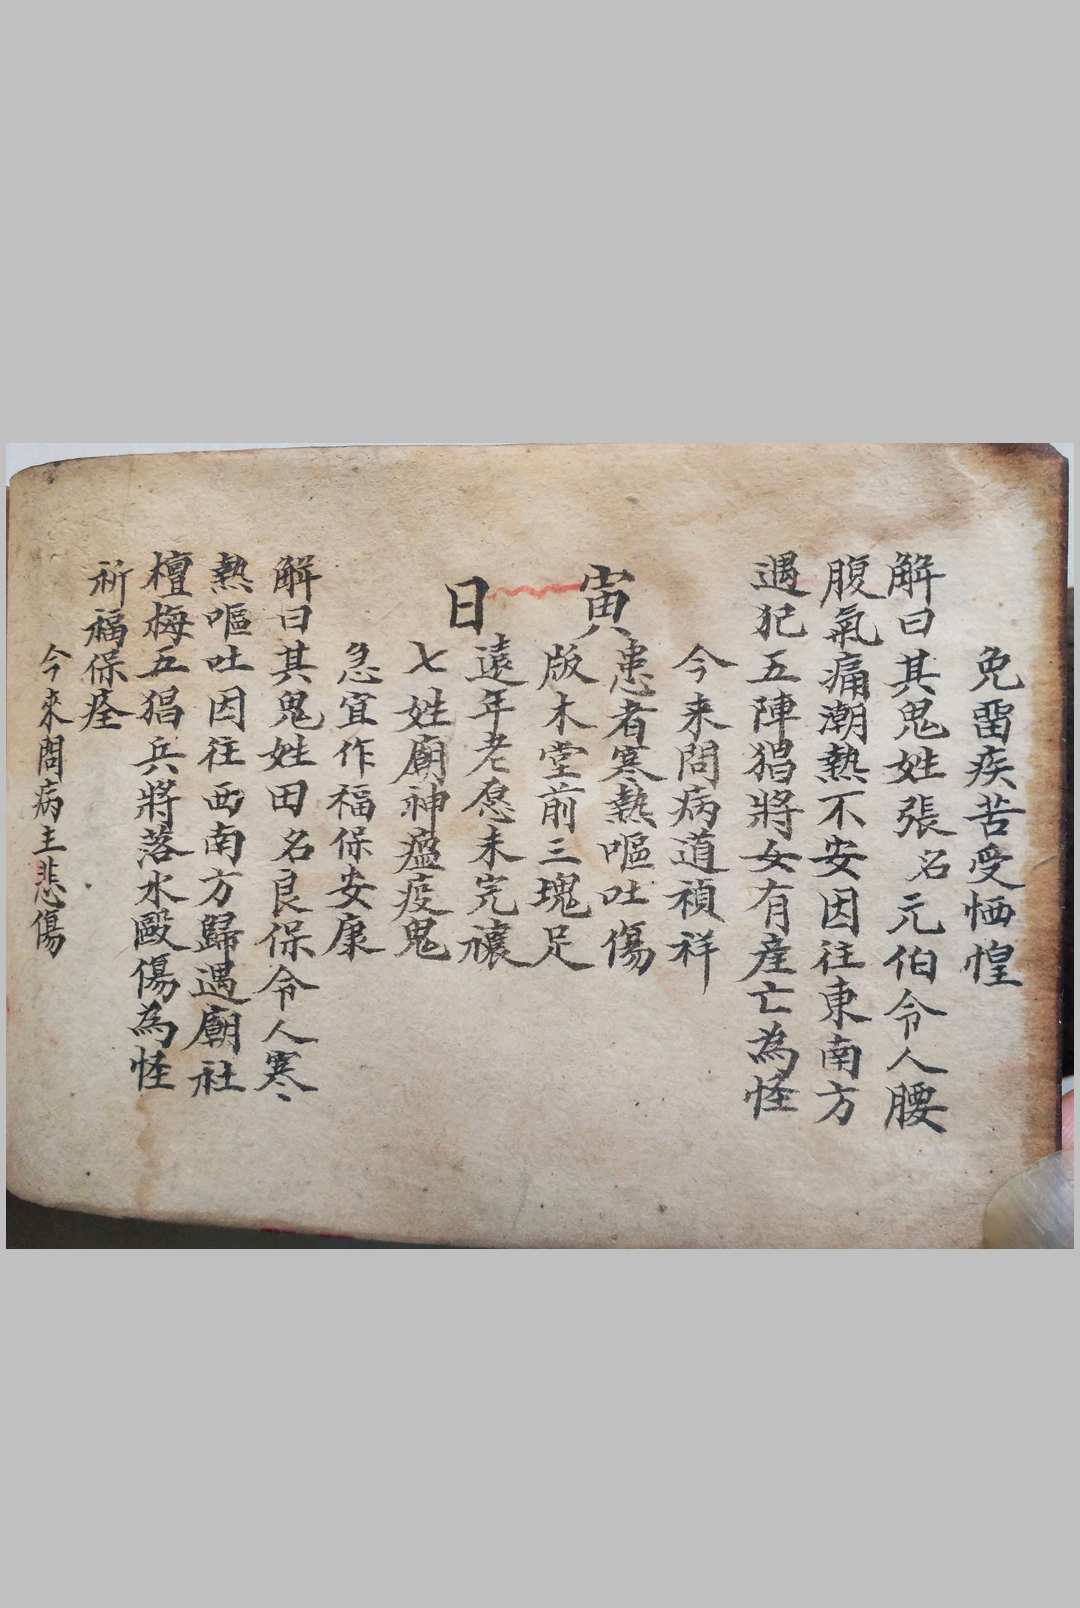 免畱疾苦受恓惶
解曰其鬼姓張名元伯令人腰
腹氣痛潮熱不安因往東南方
遇犯五陣猖將女有產亡為怪
今来問病道禎祥
寅
患者寒熱嘔吐傷
版木堂前三塊足
日
遠年老愿未完禳
七姓廟神瘟疫鬼
急宜作福保安康
解曰其鬼姓田名良保令人寒
熱嘔吐因往西南方歸遇廟社
檀梅五猖兵將落水毆傷為怪
祈福保痊
今來問病主悲傷